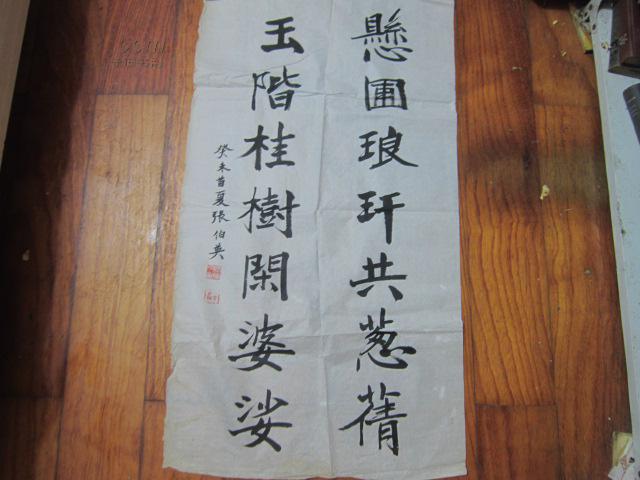 懸圃琅玕共葱蒨
玉階桂樹閑婆娑
癸未首夏張伯英